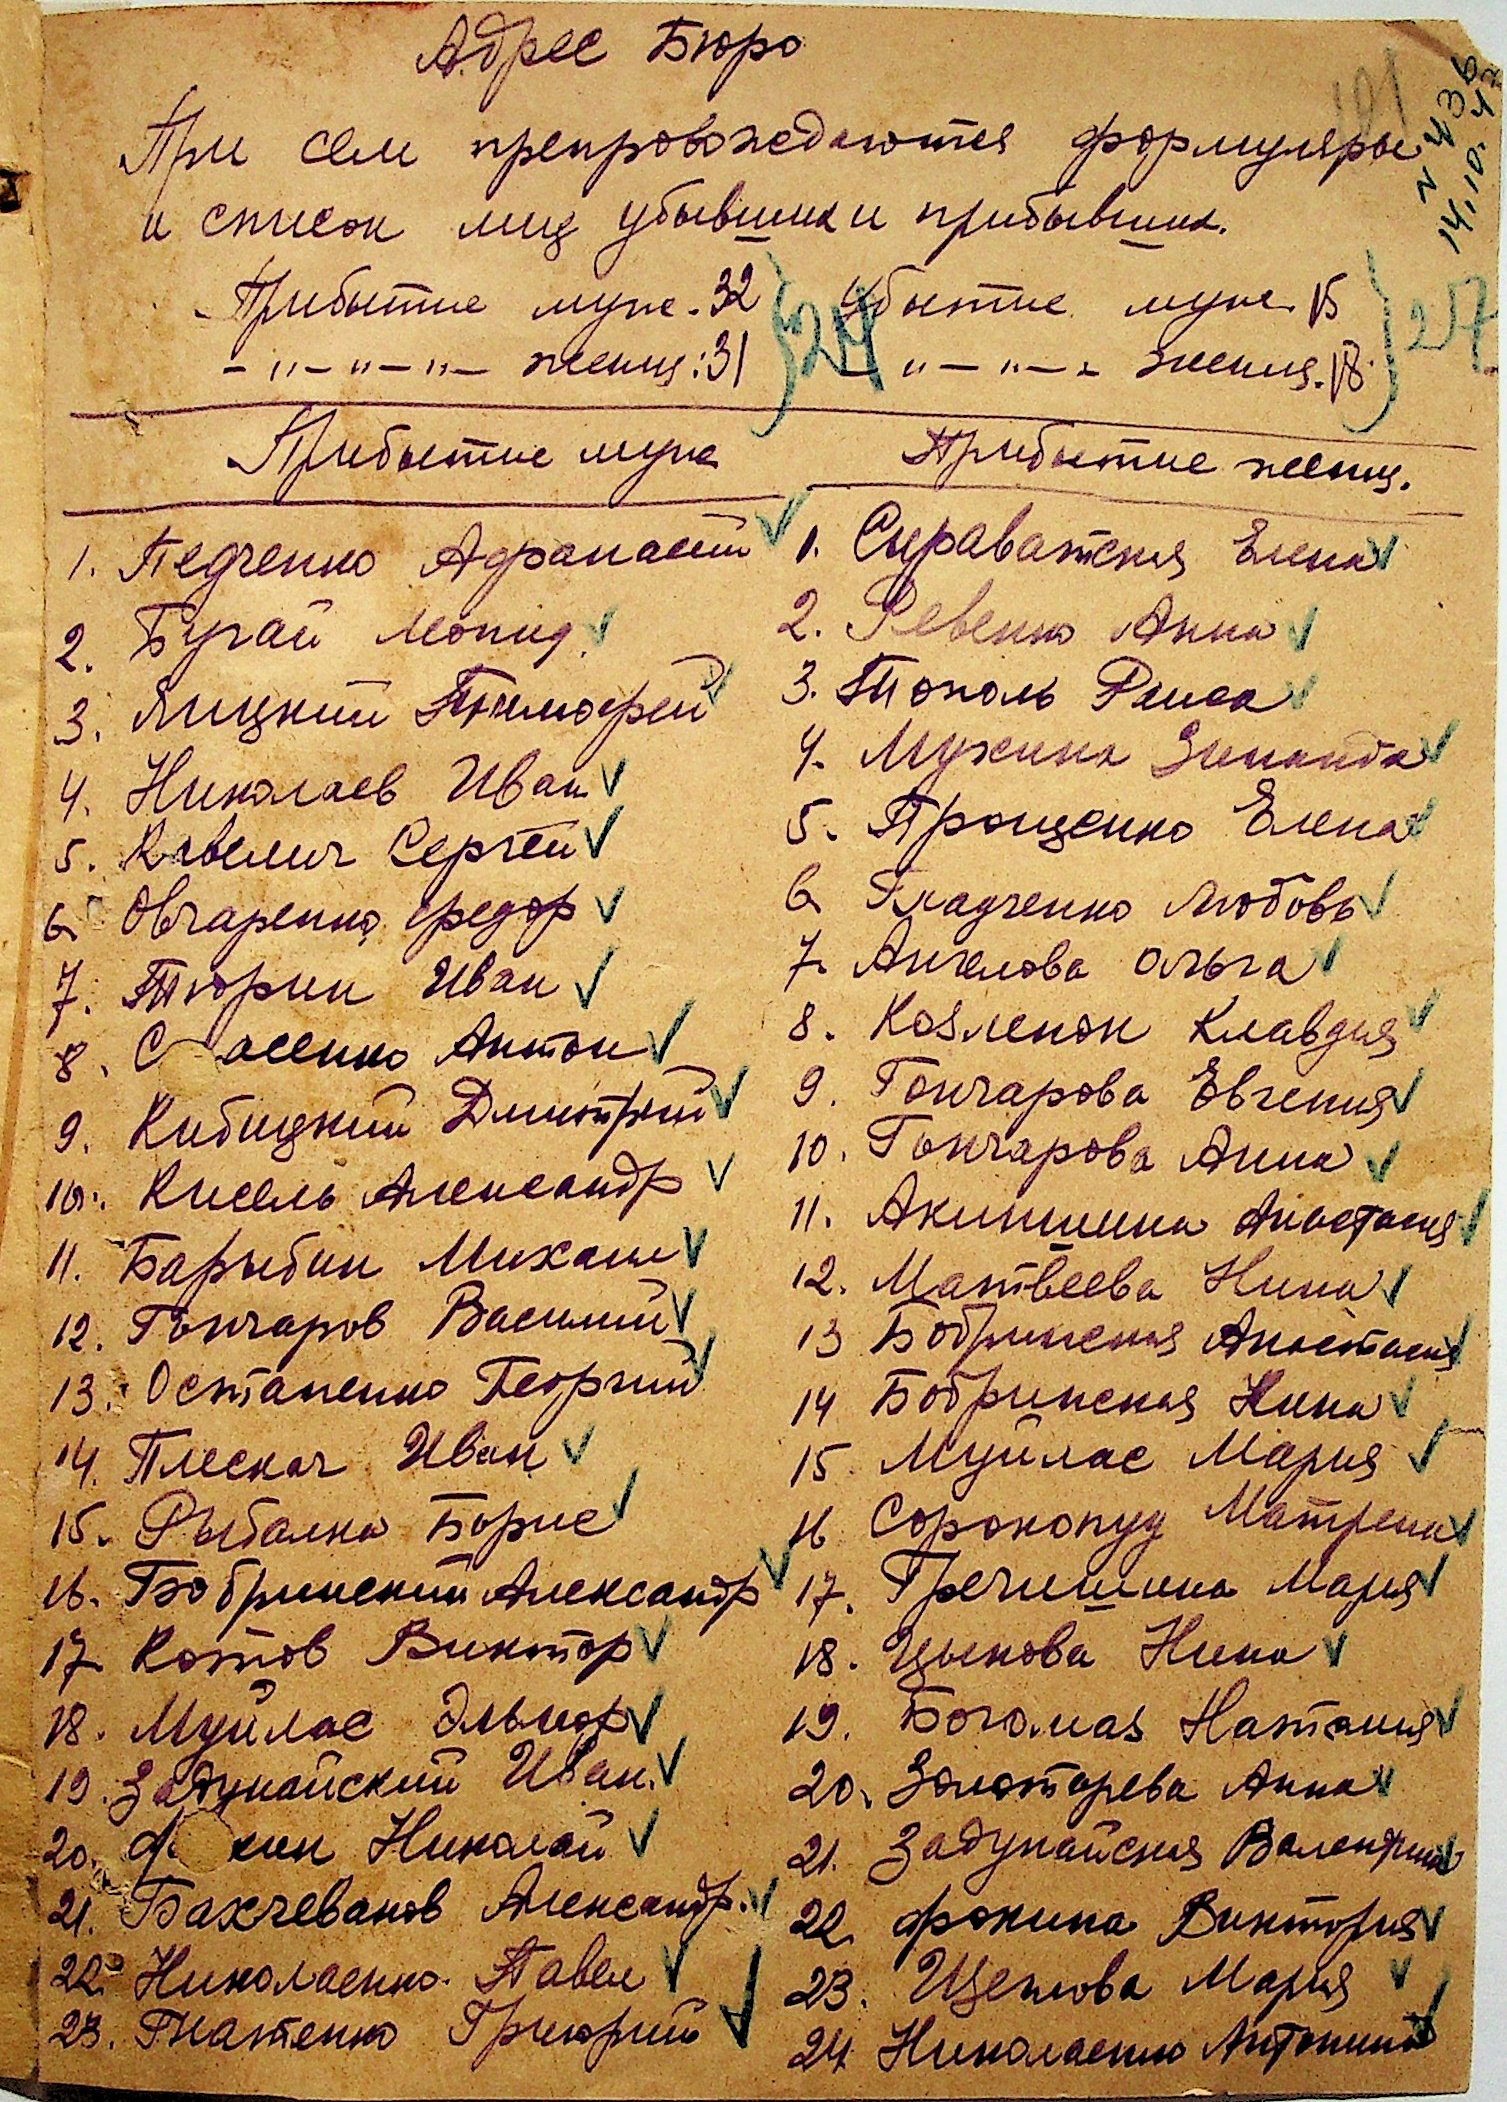 Адрес Бюро
При сем препровождаются формуляры
и список лиц убывших и прибывших.
Прибытие муж. 32 Убытие муж. 15
- " - " - " - женщ: 31 " - " - " женщ. 18
№ 436
14.10.42
101
217
Прибытие муж
1. Педченко Афанасий
2. Бугай Леонид
3. Яицкий Тимофей
4. Николаев Иван
5. Кавелич Сергей
6. Овчаренко Федор
7. Тюрин Иван
8. С асенко Антон
9. Кибицкий Дмитрий
10. Кисель Александр
11. Барыбин Михаил
12. Гончаров Василий
13. Остапенко Георгий
14. Плескач Иван
15. Рыбалка Борис
16. Бобринский Александр
17. Котов Виктор
18. Муйлас Эльмар
19. Задунайский Иван.
20. Ф кин Николай
21. Бахчеванов Александр.
22. Николаенко Павел
23. Гнатенко Григорий
Прибытие женщ.
1. Сыраватская Елена
2. Ревенко Анна
3. Тополь Раиса
4. Мухина Зинаида
5. Проценко Елена
6. Гладченко Любовь
7. Ангелова Ольга
8. Козленок Клавдия
9. Гончарова Евгения
10. Гончарова Анна
11. Акиншина Анастасия
12. Матвеева Нина
13 Бобринская Анастасия
14 Бобринская Нина
15 Муйлас Мария
16 Сорокопуд Матрена
17. Гречишкина Мария
18. Цыкова Нина
19. Богомаз Наталия
20. Золотарева Анна
21. Задунайская Валентина
22. Фокина Виктория
23. Щеглова Мария
24. Николаенко Антонина